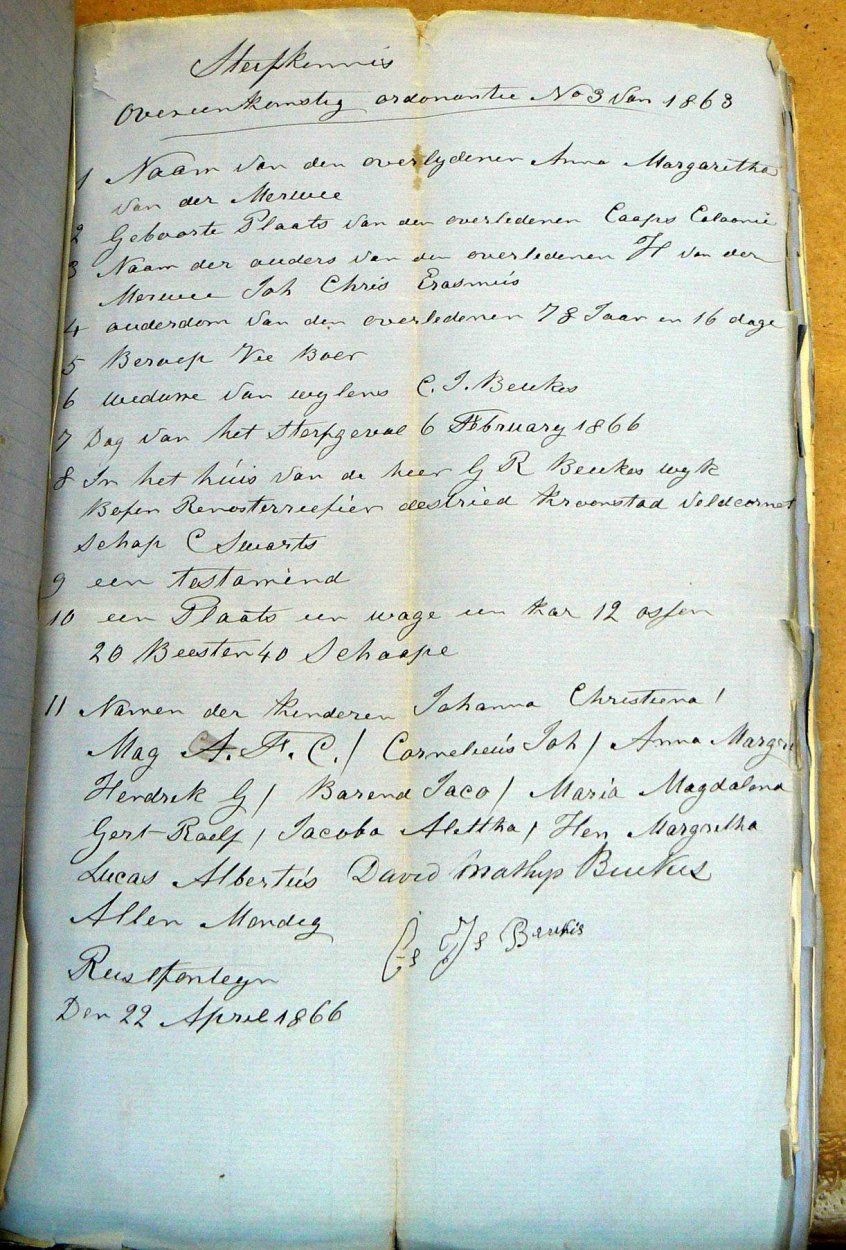 Sterfkennis
Overeenkomstig ordonantie No 3 van 1863
1 Naam van den overlydenen Anna Margaretha
van der Merwe
2 Geboorte Plaats van den overledenen Caaps Coloonie
3 Naam der ouders van den overledenen H van der
Merwe Joh Chris Erasmus
4 ouderdom van den overledenen 78 Jaar en 16 dage
5 Beroep Vee Boer
6 weduwe van wylens C. J. Beukes
7 Dag van het sterfgeval 6 February 1866
8 In het huis van de heer G R Beukes wyk
Bofen Renosterriefier destried Kroonstad Veldcornet
schap C Swarts
9 een testamend
10 een Plaats een wage een kar 12 ossen
20 Beesten 40 Schaape
11 Namen der kinderen Johanna Christiena /
Mag A. F. C. / Cornelieus Joh / Anna Margre
Hendrik G / Barend Jaco / Maria Magdalena
Gert Roelf / Jacoba Alettha / Hen Margretha
Lucas Albertus David Mathys Beukes
Allen Mondig
Beukis
Rustfonteyn
Den 22 April 1866